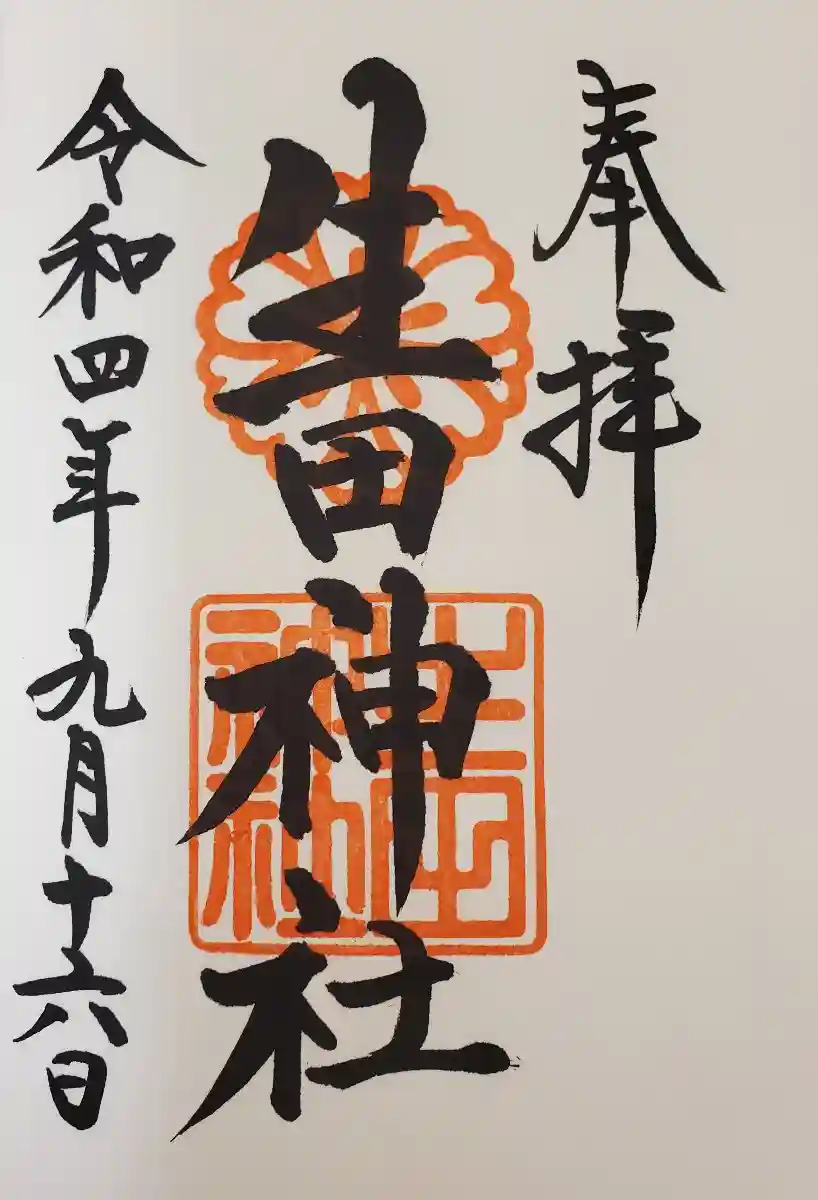 奉拝
生田神社
生田神社
令和四年九月十六日